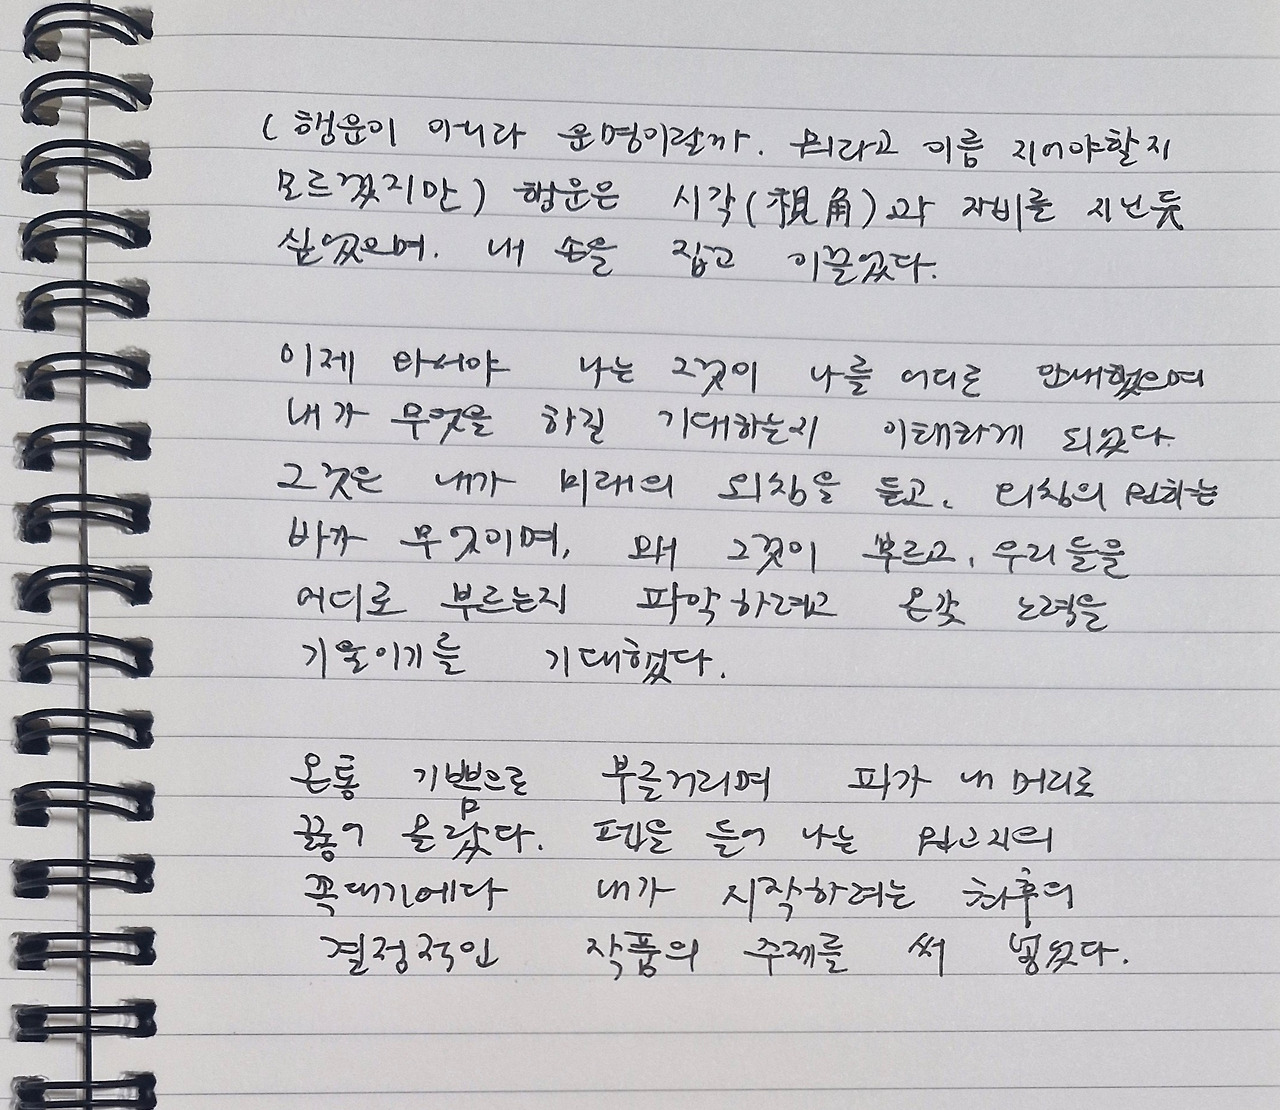 (행운이 아니라 운명이랄까. 뭐라고 이름 지어야할지
모르겠지만) 행운은 시각(視角)과 자비를 지닌듯
싶었으며. 내 손을 잡고 이끌었다.
이제 와서야 나는 그것이 나를 어디로 안내했으며
내가 무엇을 하길 기대하는지 이해하게 되었다.
그것은 내가 미래의 외침을 듣고, 외침의 원하는
바가 무엇이며, 왜 그것이 부르고, 우리들을
어디로 부르는지 파악하려고 온갖 노력을
기울이기를 기대했다.
온통 기쁨으로 부글거리며 피가 내 머리로
끓어 올랐다. 펜을 들어 나는 원고지의
꼭대기에다 내가 시작하려는 최후의
결정적인 작품의 주제를 써 넣었다.